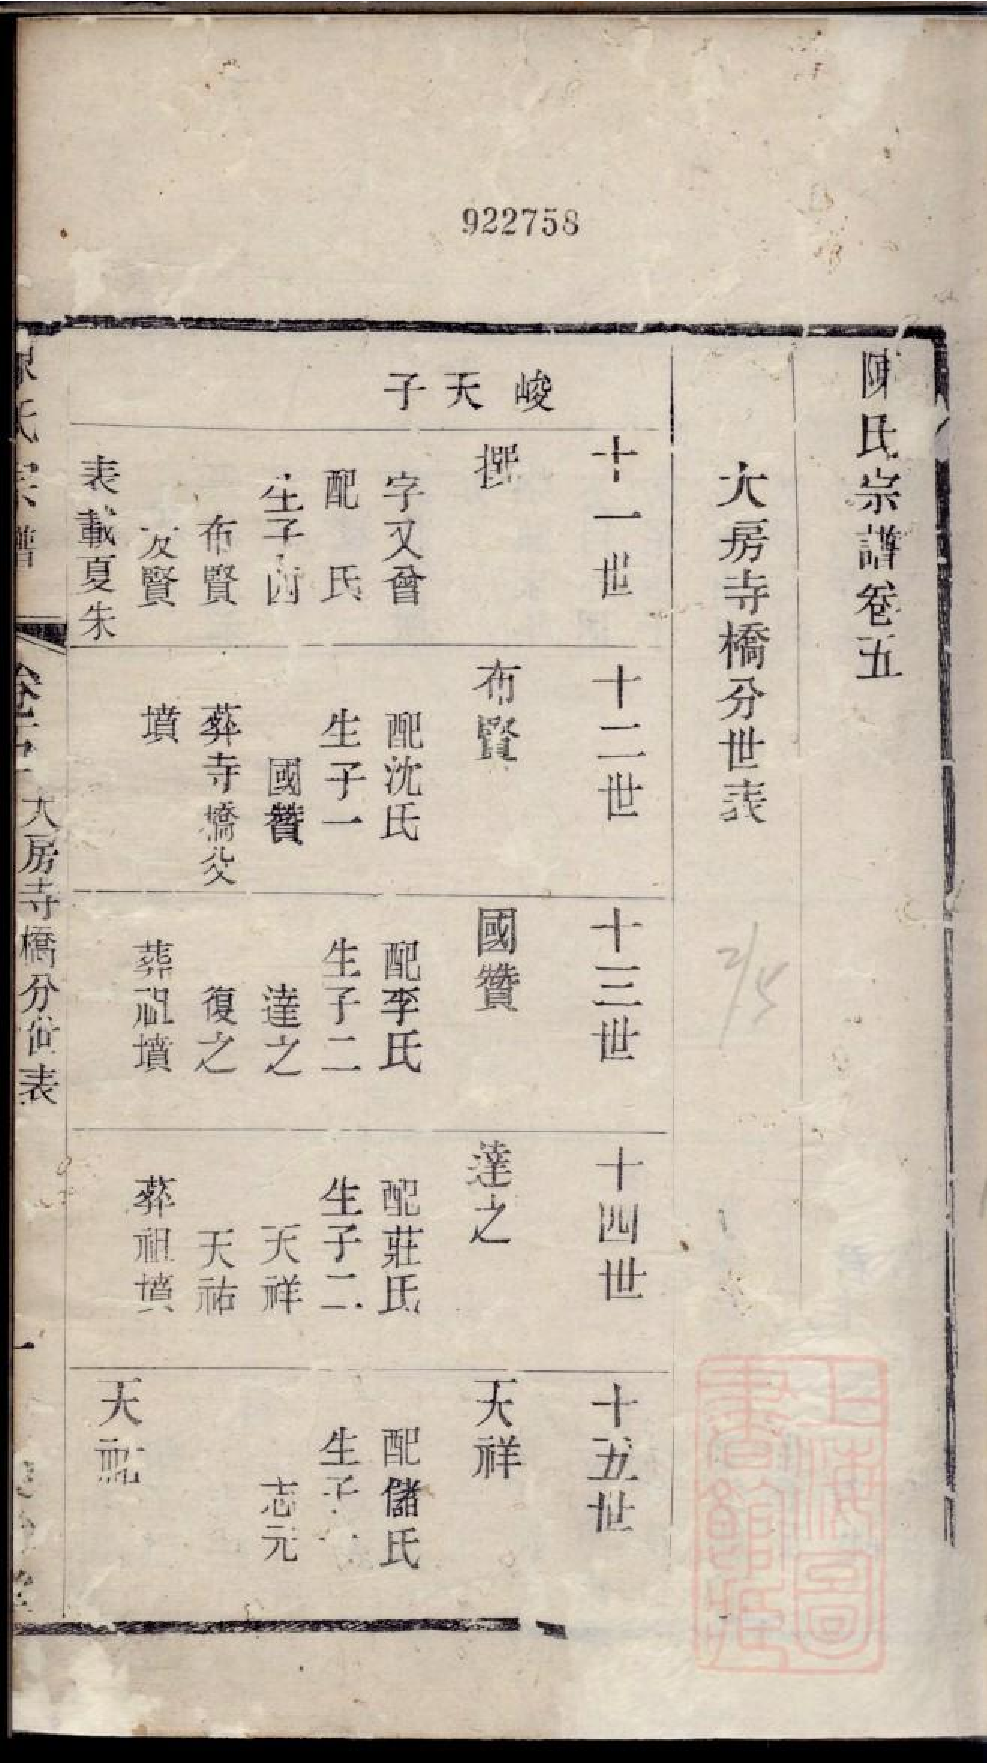 922758
陳氏宗譜卷五
大房寺橋分世表
2/5
峻天子
十一世
撰
字又曾
配 氏
生子
布賢
友賢
表載夏朱
十二世
布賢
配沈氏
生子一
國贊
葬寺橋父
墳
十三世
國贊
配李氏
生子二
達之
復之
葬祖墳
十四世
達之
配莊氏
生子二
天祥
天祐
葬祖墳
十五世
天祥
配儲氏
生子一
志元
天祐
氏宗譜
卷五
大房寺橋分世表
一
上海圖書館藏